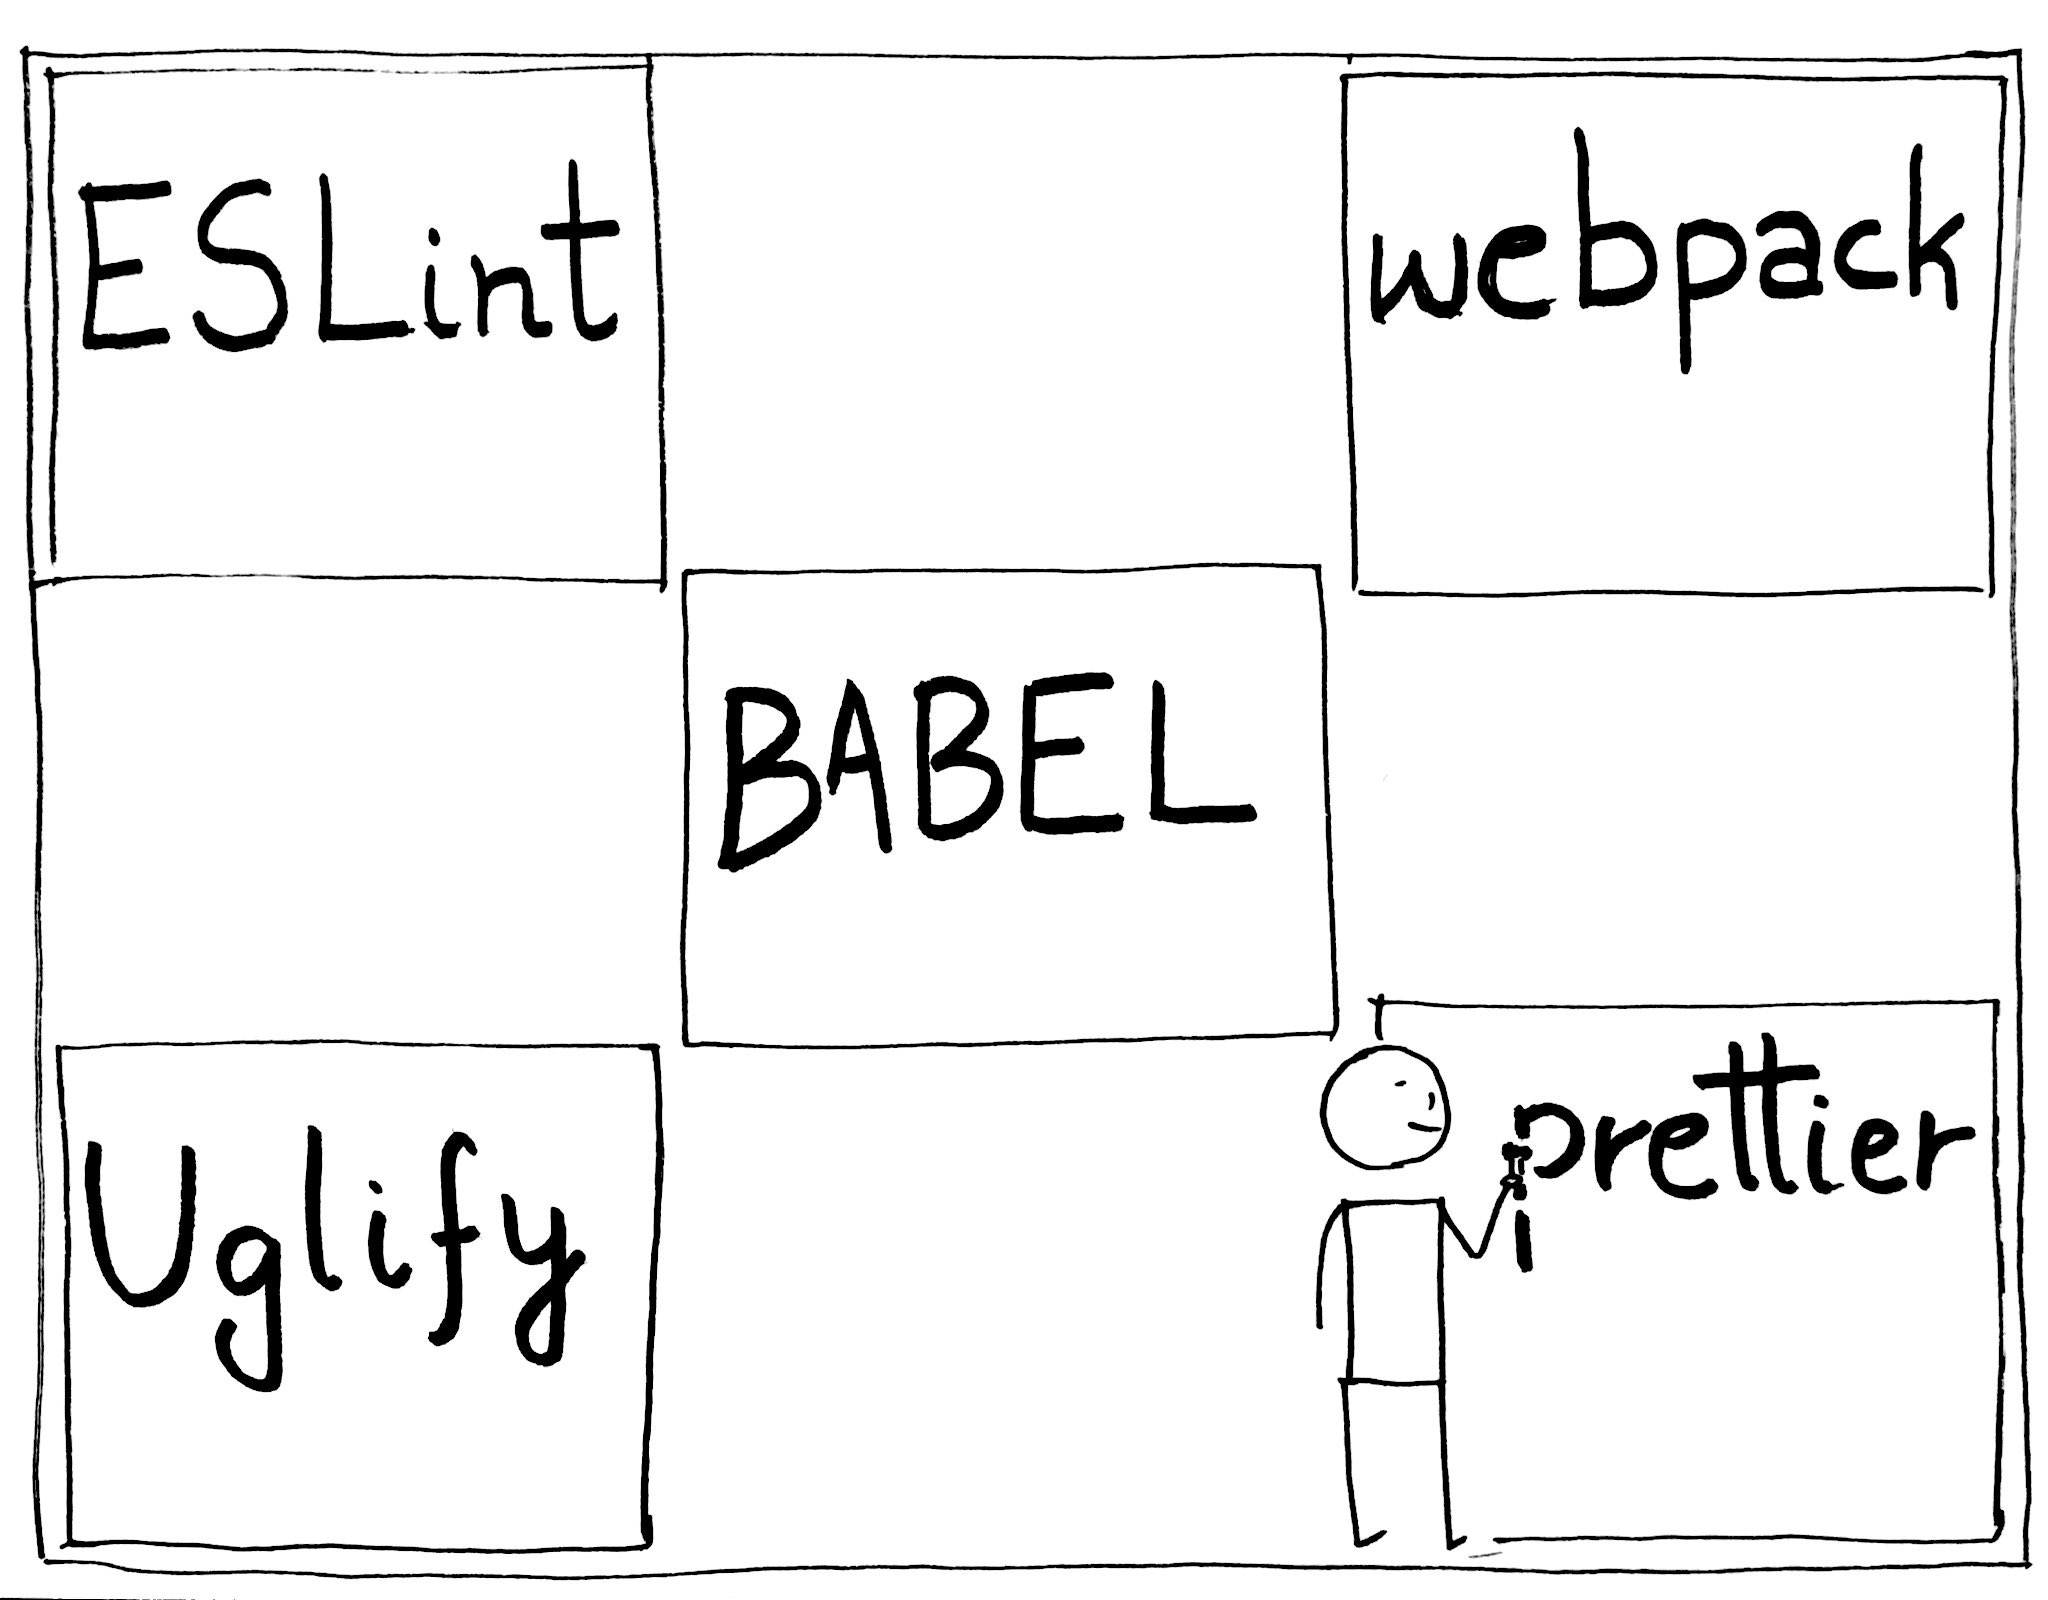 ESLint
webpack
BABEL
Uglify
prettier